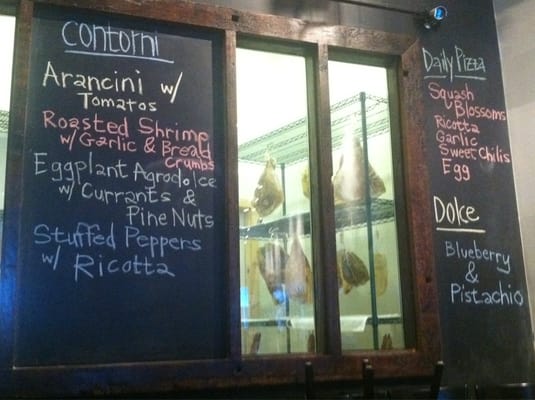 Contorni
Arancini w/
Tomatos
Roasted Shrimp
w/ Garlic & Bread
Crumbs
Eggplant Agrodolce
w/ Currants &
Pine Nuts
Stuffed Peppers
w/ Ricotta
Daily Pizza
Squash
Blossoms
Ricotta
Garlic
Sweet Chilis
Egg
Dolce
Blueberry
&
Pistachio